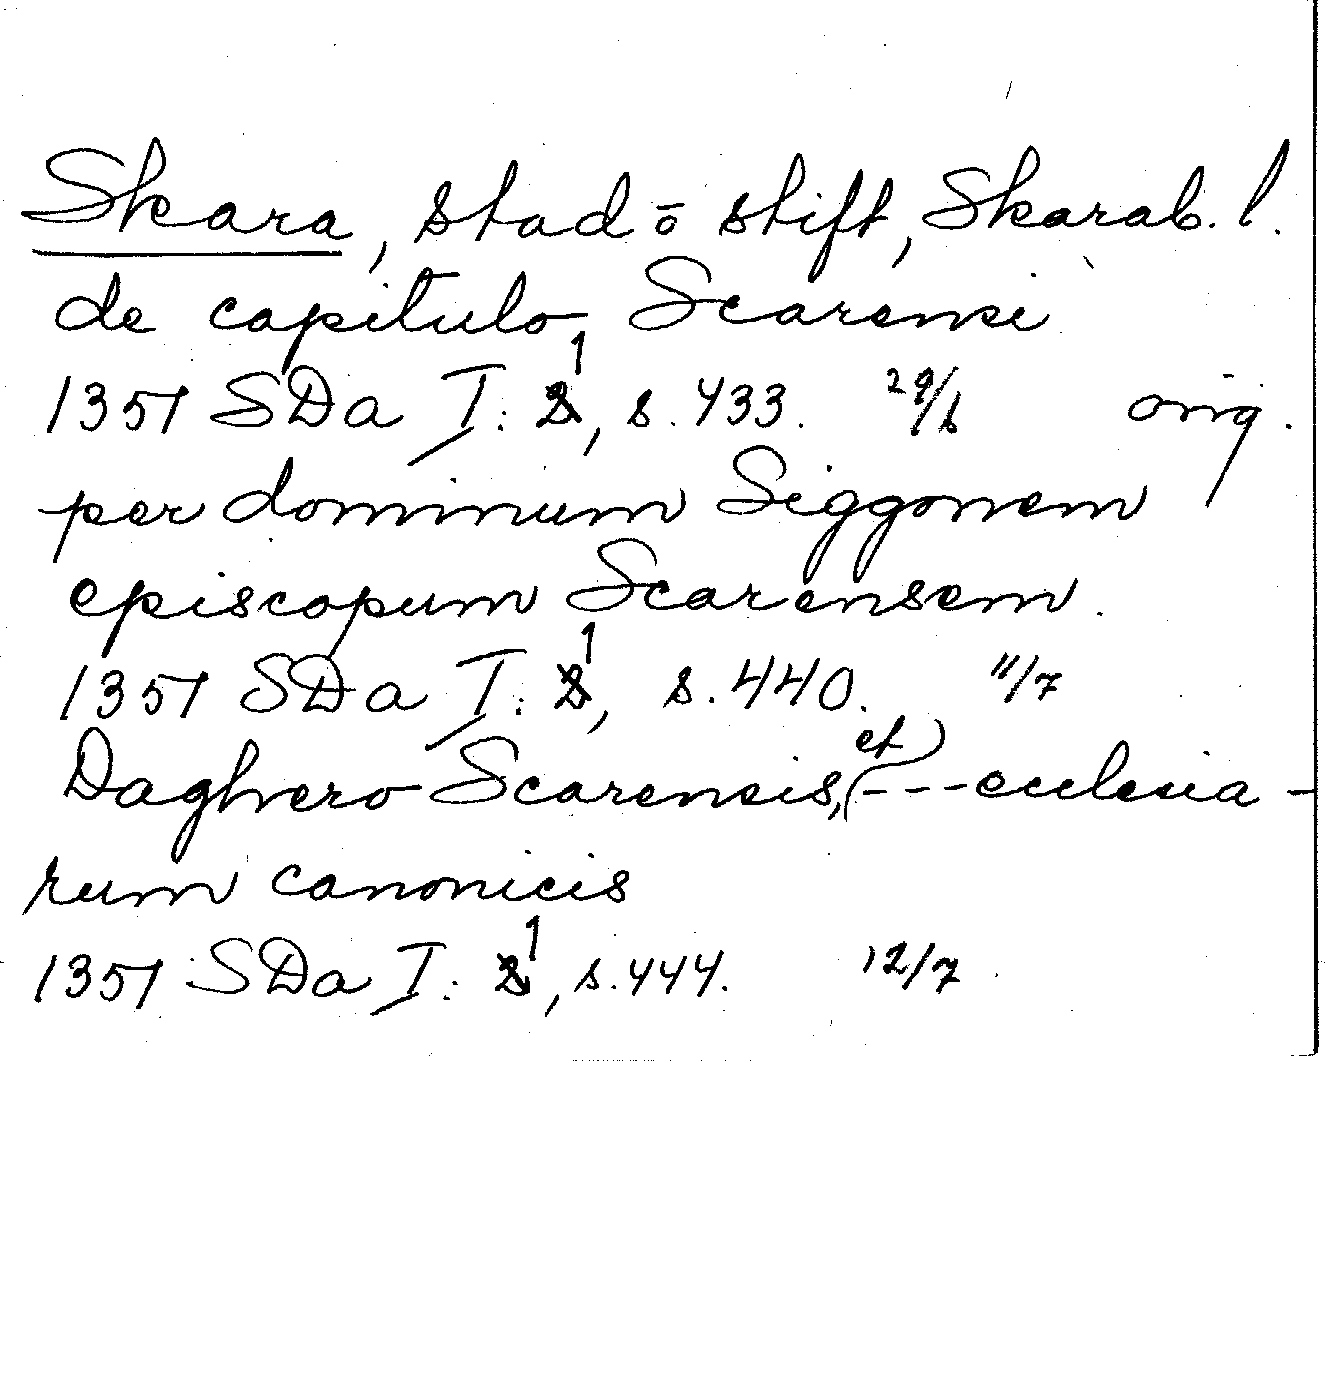 Skara, stad o stift, Skarab. l.
de capitulo Scarensi
1351 SDa I: 1, s. 433. 29/6 orig.
per dominum Siggonem
episcopum Scarensem.
1351 SDa I: 1, s. 440. 11/7
Daghero Scarensis, (et) --- ecclesia-
rum canonicis
1351 SDa I: 1, s. 444. 12/7